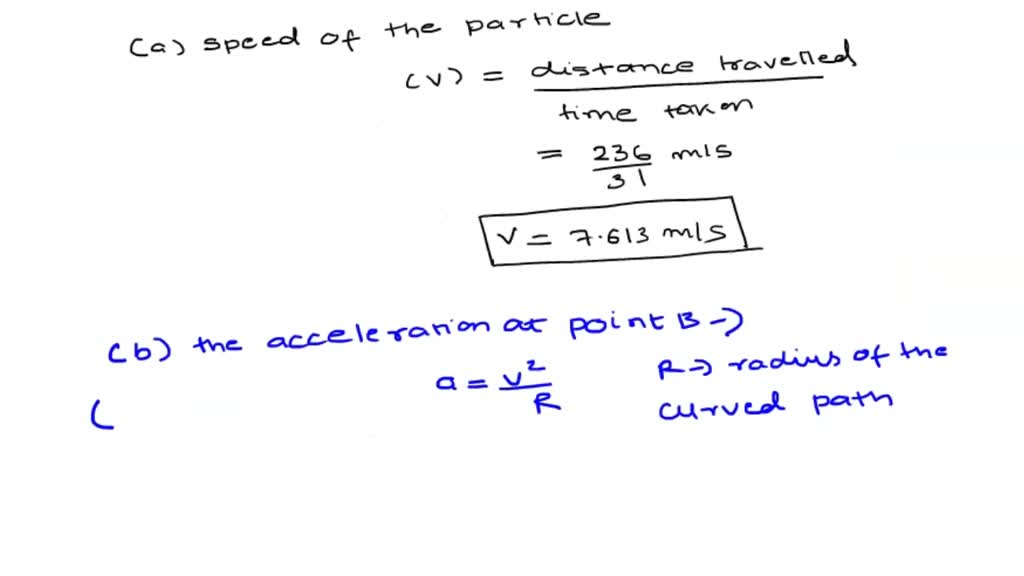 (a) speed of the particle
(v) = distance travelled
time taken
= 236 m/s
31
V = 7.613 m/s
(b) the acceleration at point B →
a = v² R → radius of the
R curved path
(